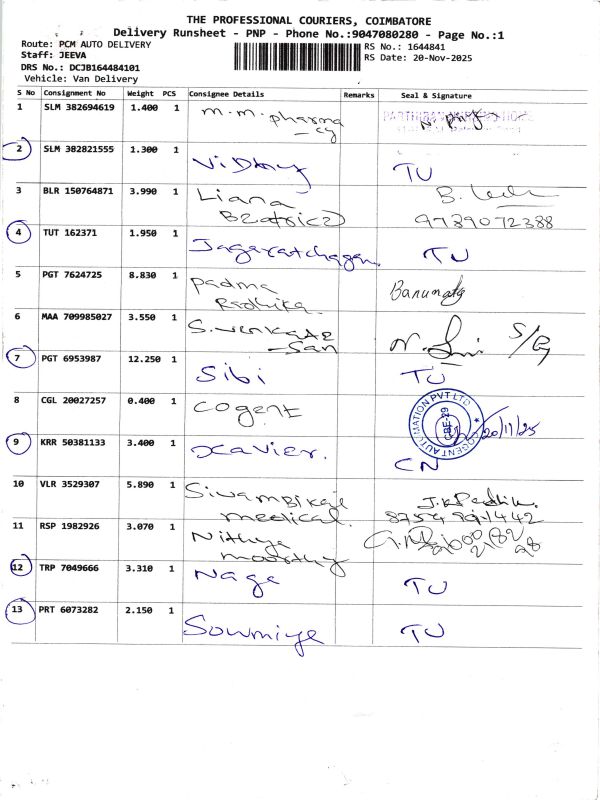 THE PROFESSIONAL COURIERS, COIMBATORE
Delivery Runsheet - PNP - Phone No.:9047080280 - Page No.:1
Route: PCM AUTO DELIVERY
RS No.: 1644841
Staff: JEEVA
RS Date: 20-Nov-2025
DRS No.: DCJB164484101
Vehicle: Van Delivery
S No Consignment No Weight PCS Consignee Details Remarks Seal & Signature
1 SLM 382694619 1.400 1 M.M. pharma
- cy
2 SLM 382821555 1.300 1 Vidhy TU
3 BLR 150764871 3.990 1 Liana
Beatrice 9739072388
4 TUT 162371 1.950 1 TU
5 PGT 7624725 8.830 1 Padma Banumaty
Radhika
6 MAA 709985027 3.550 1 S. Venkate
- San
7 PGT 6953987 12.250 1 Sibi TU
8 CGL 20027257 0.400 1 Cogent COGENT AUTOMATION PVT LTD CBE-29 20/11/25
9 KRR 50381133 3.400 1 Xavier. CN
10 VLR 3529307 5.890 1 Siwambikai
medical.
11 RSP 1982926 3.070 1 Nithya
moorthy
12 TRP 7049666 3.310 1 Naga TU
13 PRT 6073282 2.150 1 Sowmiya TU